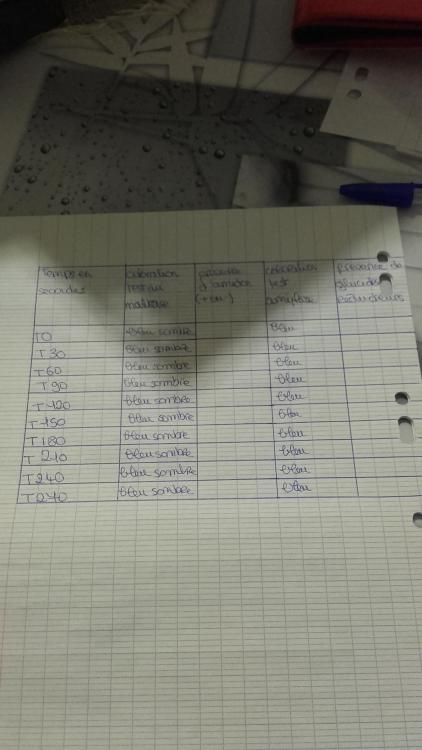 Temps en secondes | coloration test au maltase | présence d'amidon (+ou-) | coloration test amylase | présence de glucides réducteurs
T0 | bleu sombre | | bleu |
T30 | bleu sombre | | bleu |
T60 | bleu sombre | | bleu |
T90 | bleu sombre | | bleu |
T120 | bleu sombre | | bleu |
T150 | bleu sombre | | bleu |
T180 | bleu sombre | | bleu |
T210 | bleu sombre | | bleu |
T240 | bleu sombre | | bleu |
T270 | bleu sombre | | bleu |